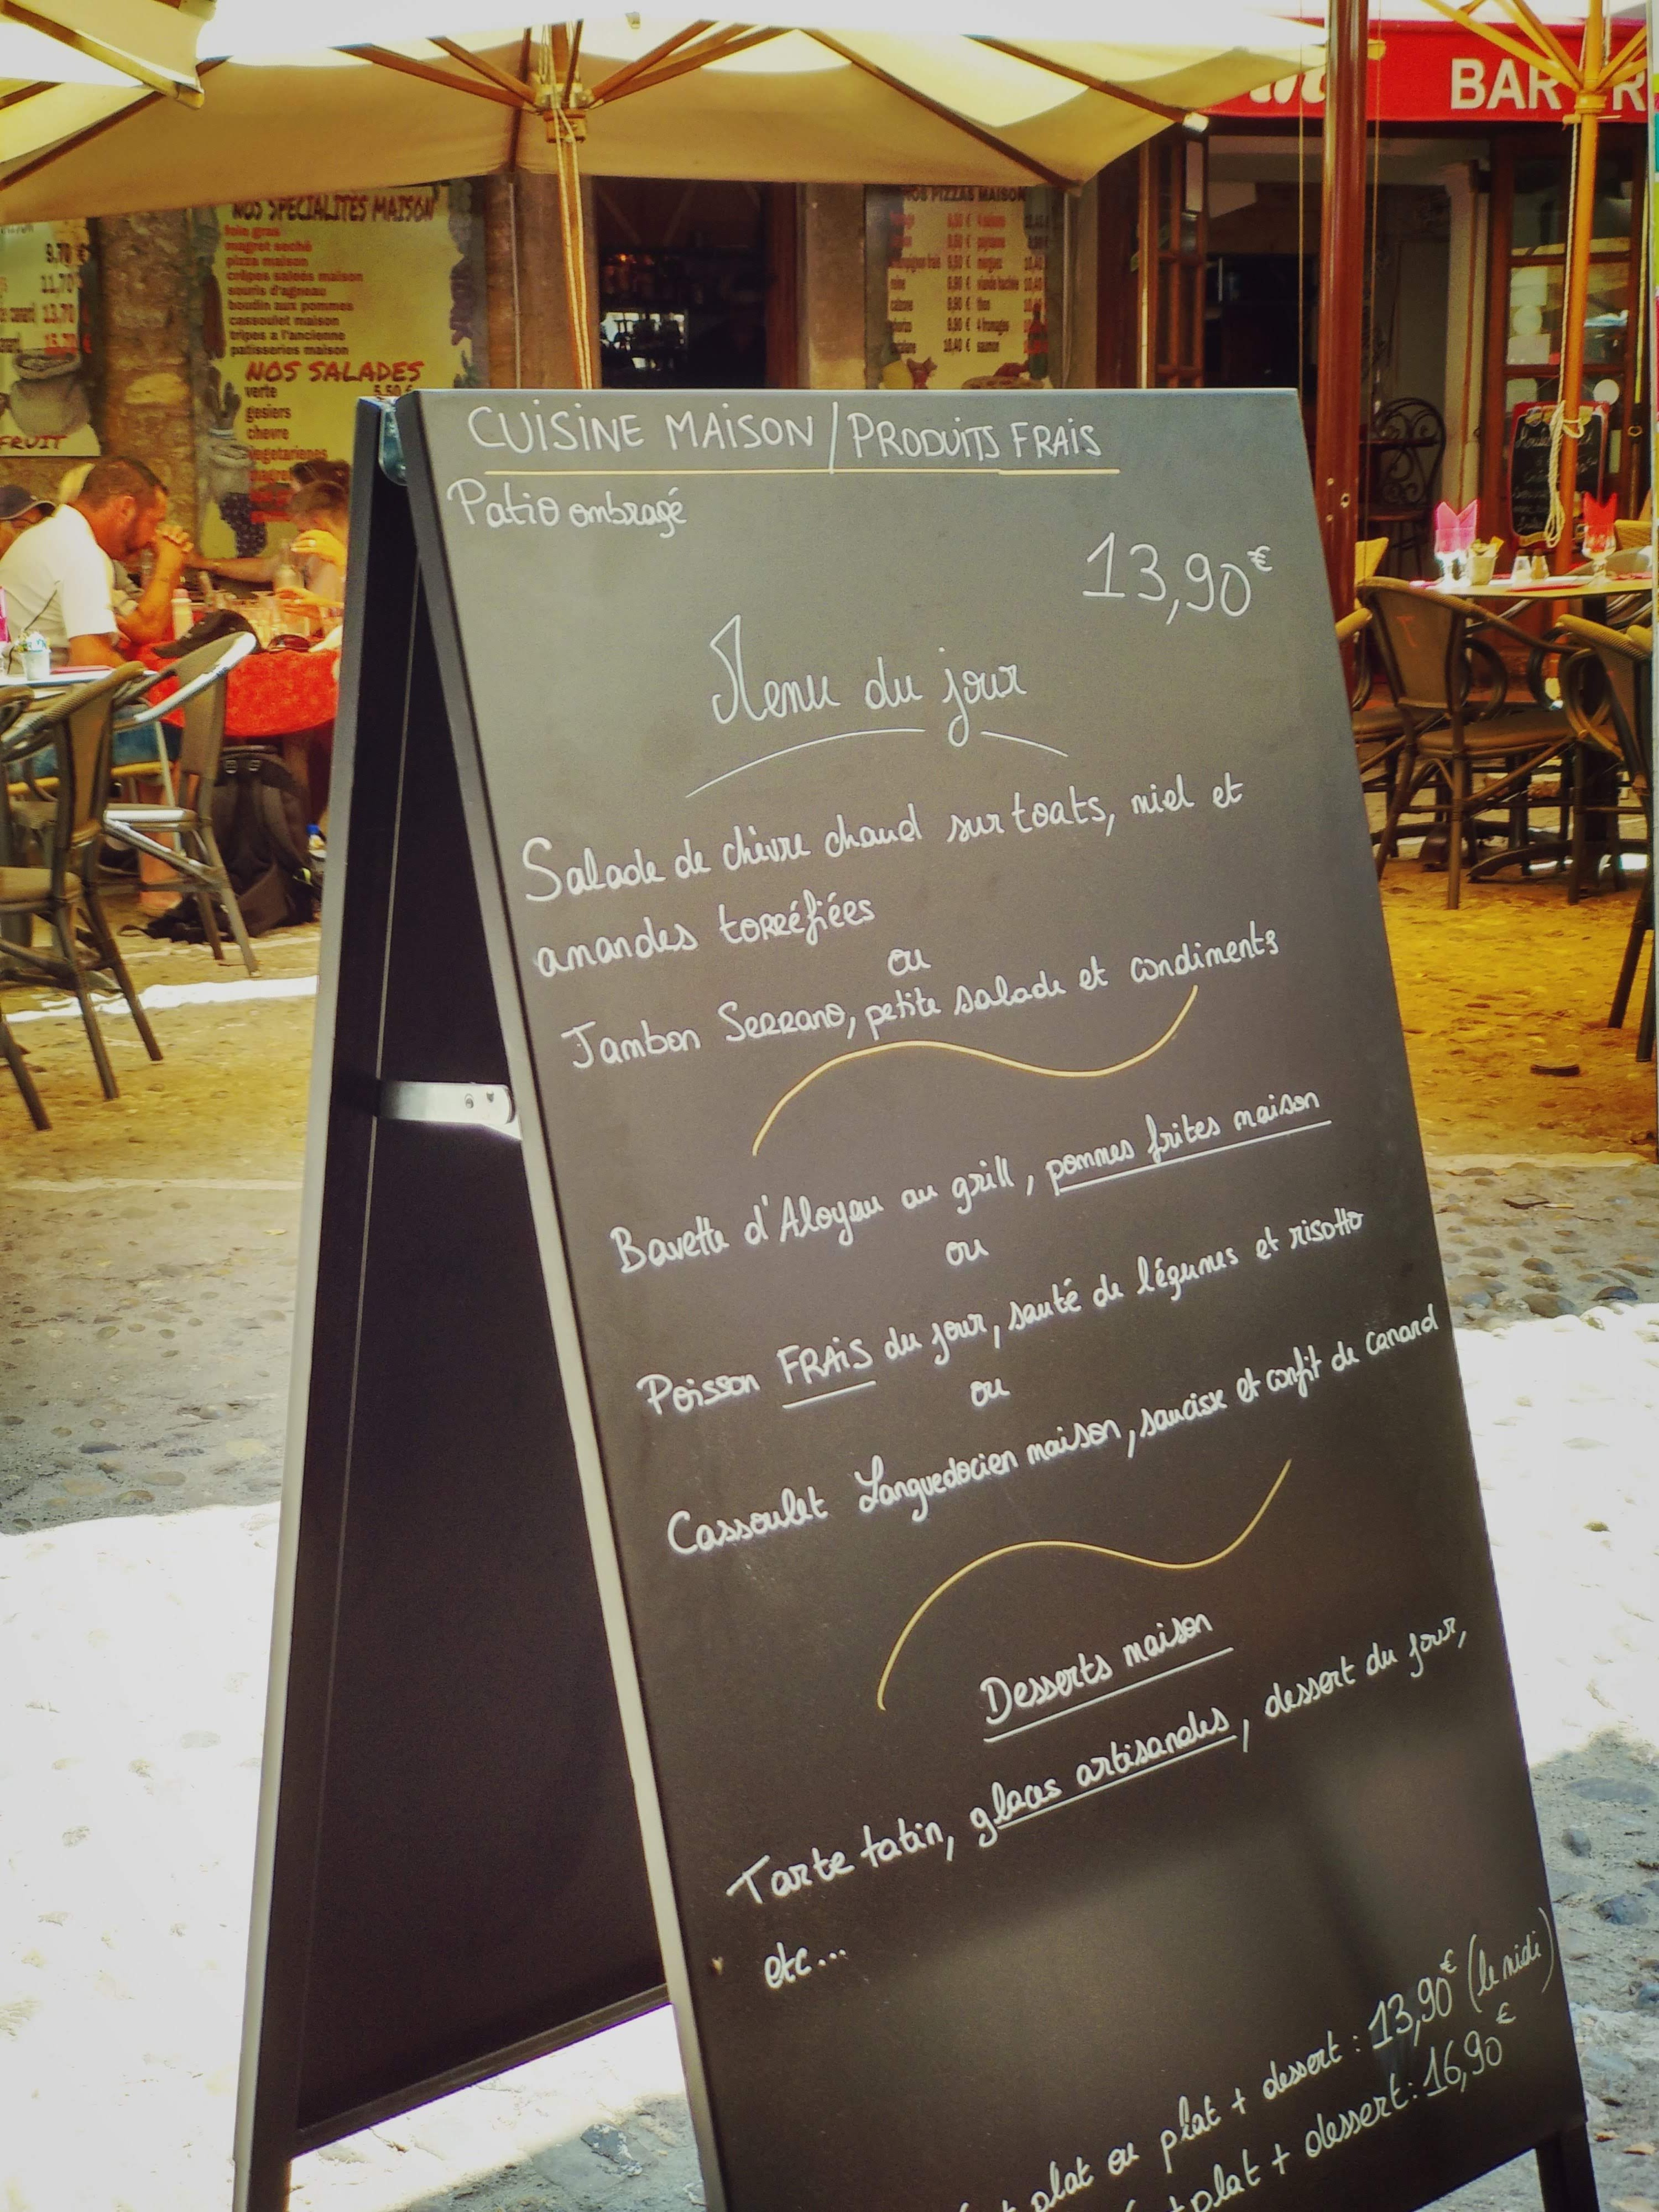 BAR
NOS SPECIALITES MAISON
foie gras
magret seché
pizza maison
crêpes salées maison
souris d'agneau
boudin aux pommes
cassoulet maison
tripes a l'ancienne
patisseries maison
NOS SALADES
verte 5.50 €
gesiers
chevre
vegetarienne
9.70 €
11,70
canard 13.70
FRUIT
NOS PIZZAS MAISON
CUISINE MAISON / PRODUITS FRAIS
Patio ombragé
13,90€
Menu du jour
Salade de chèvre chaud sur toats, miel et
amandes torréfiées
ou
Jambon SERRANO, petite salade et condiments
Bavette d'Aloyau au grill, pommes frites maison
ou
Poisson FRAIS du jour, sauté de légumes et risotto
ou
Cassoulet Languedocien maison, saucisse et confit de canard
Desserts maison
Tarte tatin, glaces artisanales, dessert du jour,
etc...
plat ou plat + dessert : 13,90€ (le midi)
plat + dessert : 16,90€